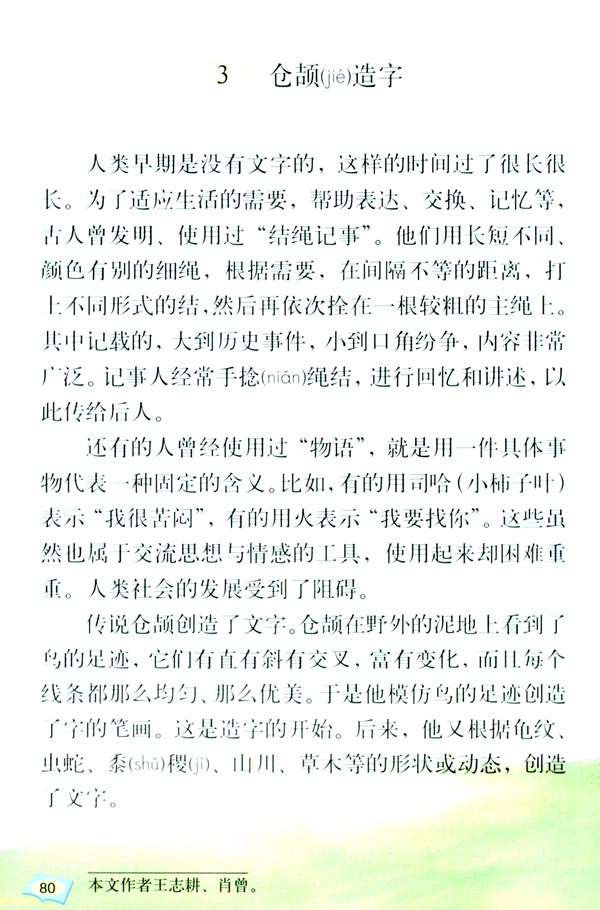 3 仓颉(jié)造字
人类早期是没有文字的，这样的时间过了很长很
长。为了适应生活的需要，帮助表达、交换、记忆等，
古人曾发明、使用过“结绳记事”。他们用长短不同、
颜色有别的细绳，根据需要，在间隔不等的距离，打
上不同形式的结，然后再依次拴在一根较粗的主绳上。
其中记载的，大到历史事件，小到口角纷争，内容非常
广泛。记事人经常手捻(niǎn)绳结，进行回忆和讲述，以
此传给后人。
还有的人曾经使用过“物语”，就是用一件具体事
物代表一种固定的含义。比如，有的用司哈（小柿子叶）
表示“我很苦闷”，有的用火表示“我要找你”。这些虽
然也属于交流思想与情感的工具，使用起来却困难重
重。人类社会的发展受到了阻碍。
传说仓颉创造了文字。仓颉在野外的泥地上看到了
鸟的足迹，它们有直有斜有交叉，富有变化，而且每个
线条都那么均匀、那么优美。于是他模仿鸟的足迹创造
了字的笔画。这是造字的开始。后来，他又根据龟纹、
虫蛇、黍(shǔ)稷(jì)、山川、草木等的形状或动态，创造
了文字。
本文作者王志耕、肖曾。
80